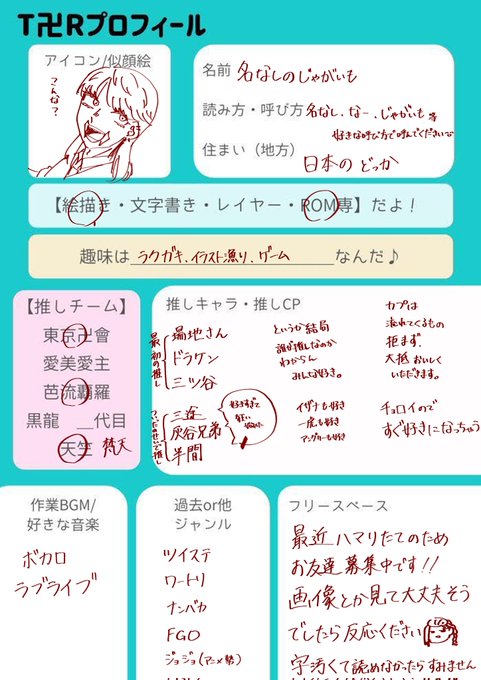 T卍Rプロフィール
アイコン/似顔絵
こんな？
名前 名なしのじゃがいも
読み方・呼び方 名なし、なー、じゃがいも 等
好きな呼び方で呼んでください
住まい（地方） 日本のどっか
【絵描き・文字書き・レイヤー・ROM専】だよ！
趣味は ラクガキ、イラスト漁り、ゲーム なんだ♪
【推しチーム】
東京卍會
愛美愛主
芭流覇羅
黒龍 __代目
天竺 梵天
推しキャラ・推しCP
最初の推し
場地さん
ドラケン
三ツ谷
三途
灰谷兄弟
半間
好きすぎて
というか結局
誰が推しなのか
わからん
みんな好き。
イザナも好き
一虎も好き
アングリーも好き
カプは
流れてくるもの
拒まず
大抵おいしく
いただきます。
チョロイので
すぐ好きになっちゃう
作業BGM/
好きな音楽
ボカロ
ラブライブ
過去or他
ジャンル
ツイステ
ワートリ
ナンバカ
FGO
ジョジョ(アニメ勢)
フリースペース
最近ハマりたてのため
お友達募集中です!!
画像とか見て大丈夫そう
でしたら反応ください
字汚くて読めなかったらすみません